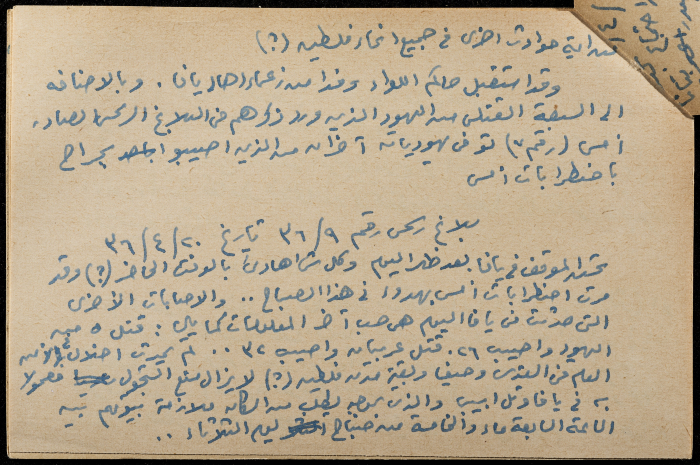 أية حوادث اخرى في جميع انحاء فلسطين (؟)
وقد استقبل حاكم اللواء وفدا من زعماء اهالي يافا . وبالاضافة
الى السبعة القتلى من اليهود الذين ورد ذكرهم في البلاغ الرسمي الصادر
أمس (رقم ٧) توفي يهوديان آخران من الذين اصيبوا بجراح
باضطرابات أمس
بلاغ رسمي رقم ٣٦/٩ تاريخ ٣٦/٤/٢٠
تحسن الموقف في يافا بعد ظهر اليوم وكل شيء هادئ بالوقت الحاضر (؟) وقد
مرت اضطرابات أمس بهدوء في هذا الصباح .. والاصابات الاخرى
التي حدثت في يافا اليوم هي حسب آخر المعلومات كما يلي : قتل ٥ من
اليهود واصيب ٢٦ . قتل عربيان واصيب ٣٢ .. لم يحدث اخلال بالامن
العام في القدس وحيفا وبقية مدن فلسطين (؟) لا يزال منع التجول معمولا
به في يافا وتل ابيب والذي بموجبه يطلب من السكان ملازمة بيوتهم بين
الساعة السابعة مساء والخامسة من صباح يوم الثلاثاء ..